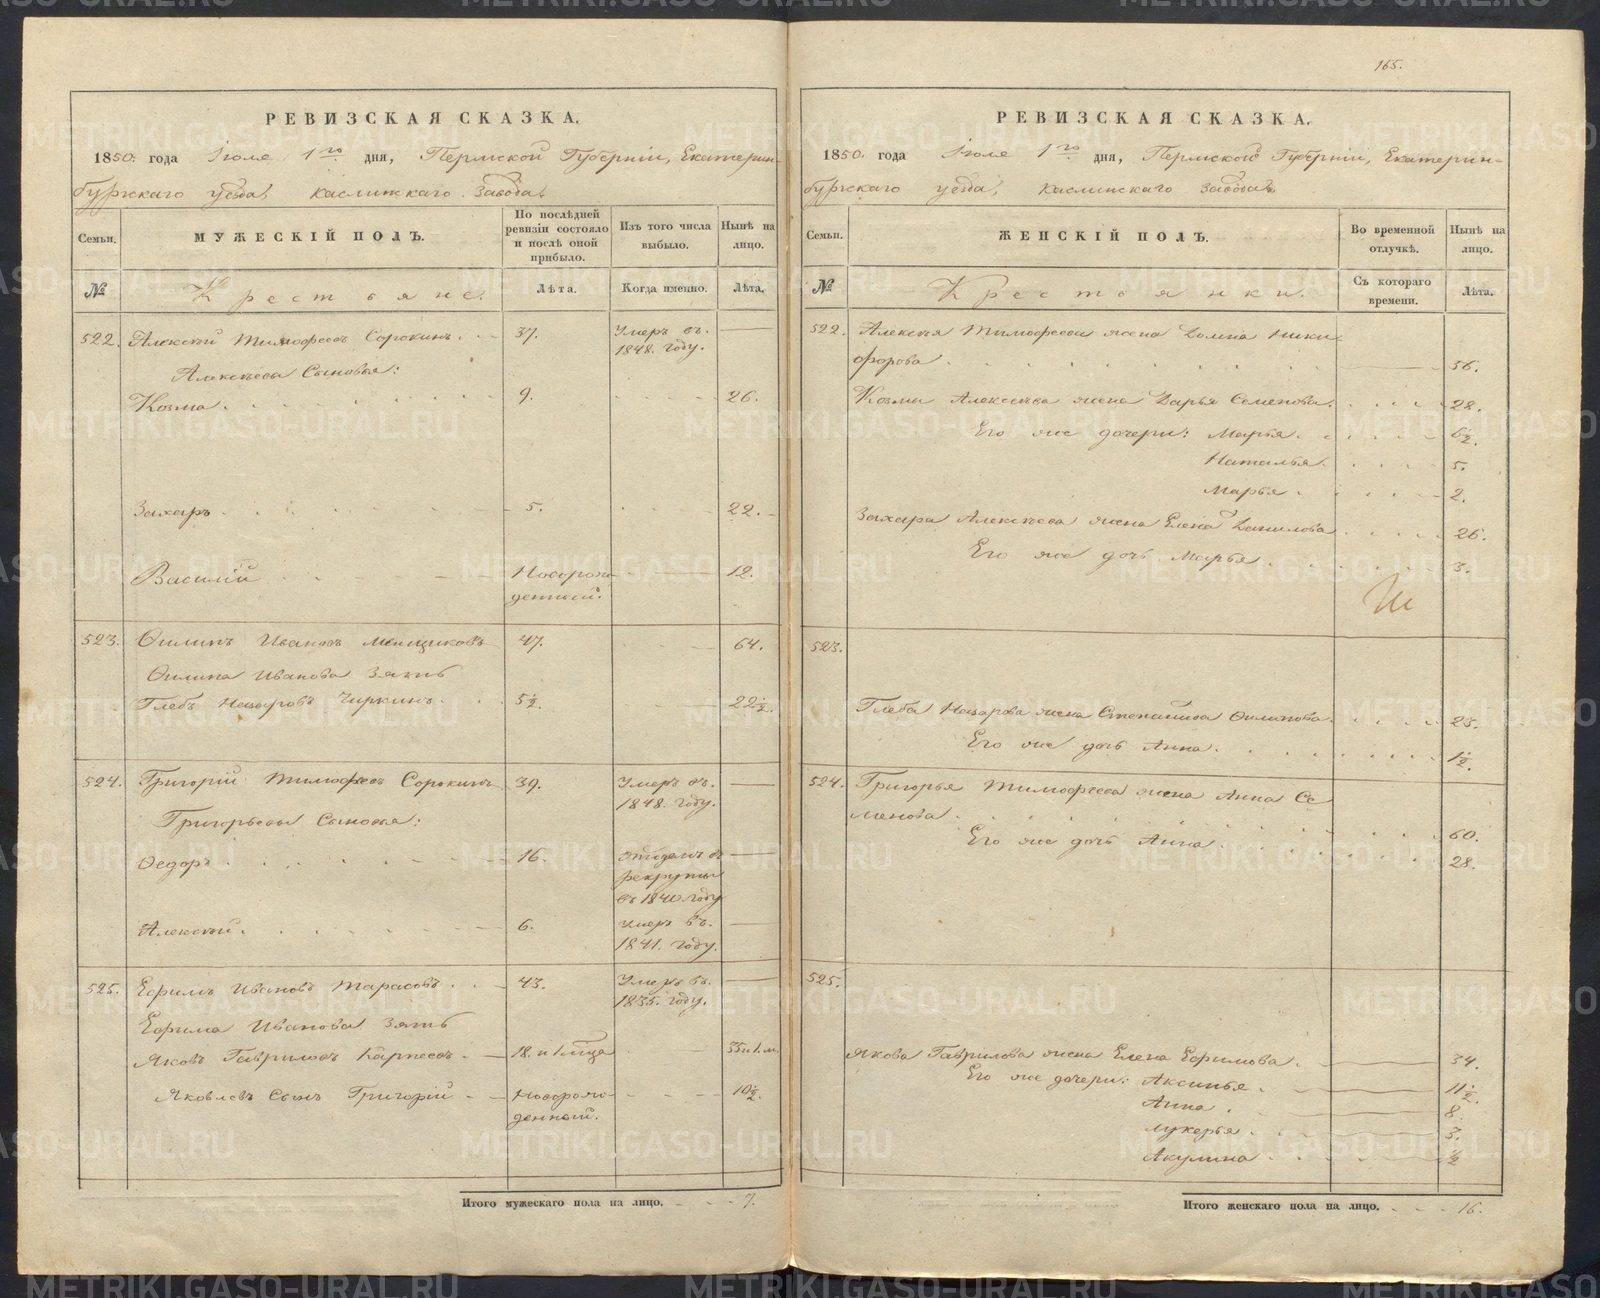 165.
РЕВИЗСКАЯ СКАЗКА.
1850. года Іюля 1го дня, Пермской Губерніи, Екатерин-
бургскаго уѣзда, Каслинскаго завода.
Семьи.
МУЖЕСКІЙ ПОЛЪ.
По послѣдней ревизіи состояло и послѣ оной прибыло.
Изъ того числа выбыло.
Нынѣ на лицо.
№
Крестьяне.
Лѣта.
Когда именно.
Лѣта.
522. Алексѣй Тимофеевъ Сорокинъ. 37. Умеръ въ
1848. году.
Алексѣевы Сыновья:
Козма. 9. 26.
Захаръ 5. 22.
Василій Новорож- 12.
денный.
523. Филипъ Ивановъ Мѣнщиковъ 47. 64.
Филипа Иванова зять
Глебъ Назаровъ Чиркинъ. 5½. 22½.
524. Григорій Тимофеевъ Сорокинъ 39. Умеръ въ
1848. году.
Григорьевы Сыновья:
Федоръ. 16. Отданъ въ
рекруты
въ 1840 году
Алексѣй. 6. Умеръ въ
1841. году.
525. Ефимъ Ивановъ Тарасовъ. 43. Умеръ въ
1835. году.
Ефима Иванова зять
Яковъ Гавриловъ Карпеевъ. 18. и 1 м-ца 35 и 1. м.
Яковлевъ Сынъ Григорій Новорож- 10½.
денный.
Итого мужескаго пола на лицо. 7.
РЕВИЗСКАЯ СКАЗКА.
1850. года Іюля 1го дня, Пермской Губерніи, Екатерин-
бургскаго уѣзда, Каслинскаго завода.
Семьи.
ЖЕНСКІЙ ПОЛЪ.
Во временной отлучкѣ.
Нынѣ на лицо.
№
Крестьянки.
Съ котораго времени.
Лѣта.
522. Алексѣя Тимофеева жена Домна Ники
форова 56.
Козмы Алексѣева жена Дарья Семенова. 28.
Его же дочери: Марья. 6½.
Наталья. 5.
Марья. 2.
Захара Алексѣева жена Елена Данилова 26.
Его же дочь Марья. 3.
523.
Глеба Назарова жена Степанида Филипова. 23.
Его же дочь Анна. 1½.
524. Григорья Тимофеева жена Анна Се
менова. 60.
Его же дочь Анна. 28.
525.
Якова Гаврилова жена Елена Ефимова. 34.
Его же дочери: Аксинья. 11½.
Анна. 8.
Лукерья. 3.
Акулина. ½
Итого женскаго пола на лицо. 16.
METRIKI.GASO-URAL.RU